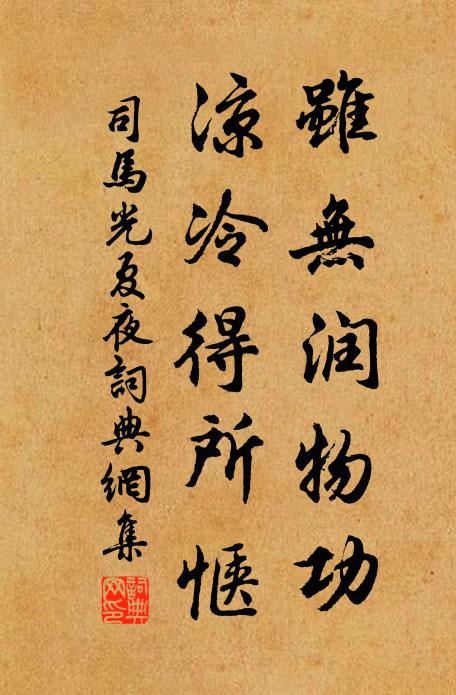 雖無润物功
凉冷得所惬
司馬光夏夜詞典網集
詞典网印